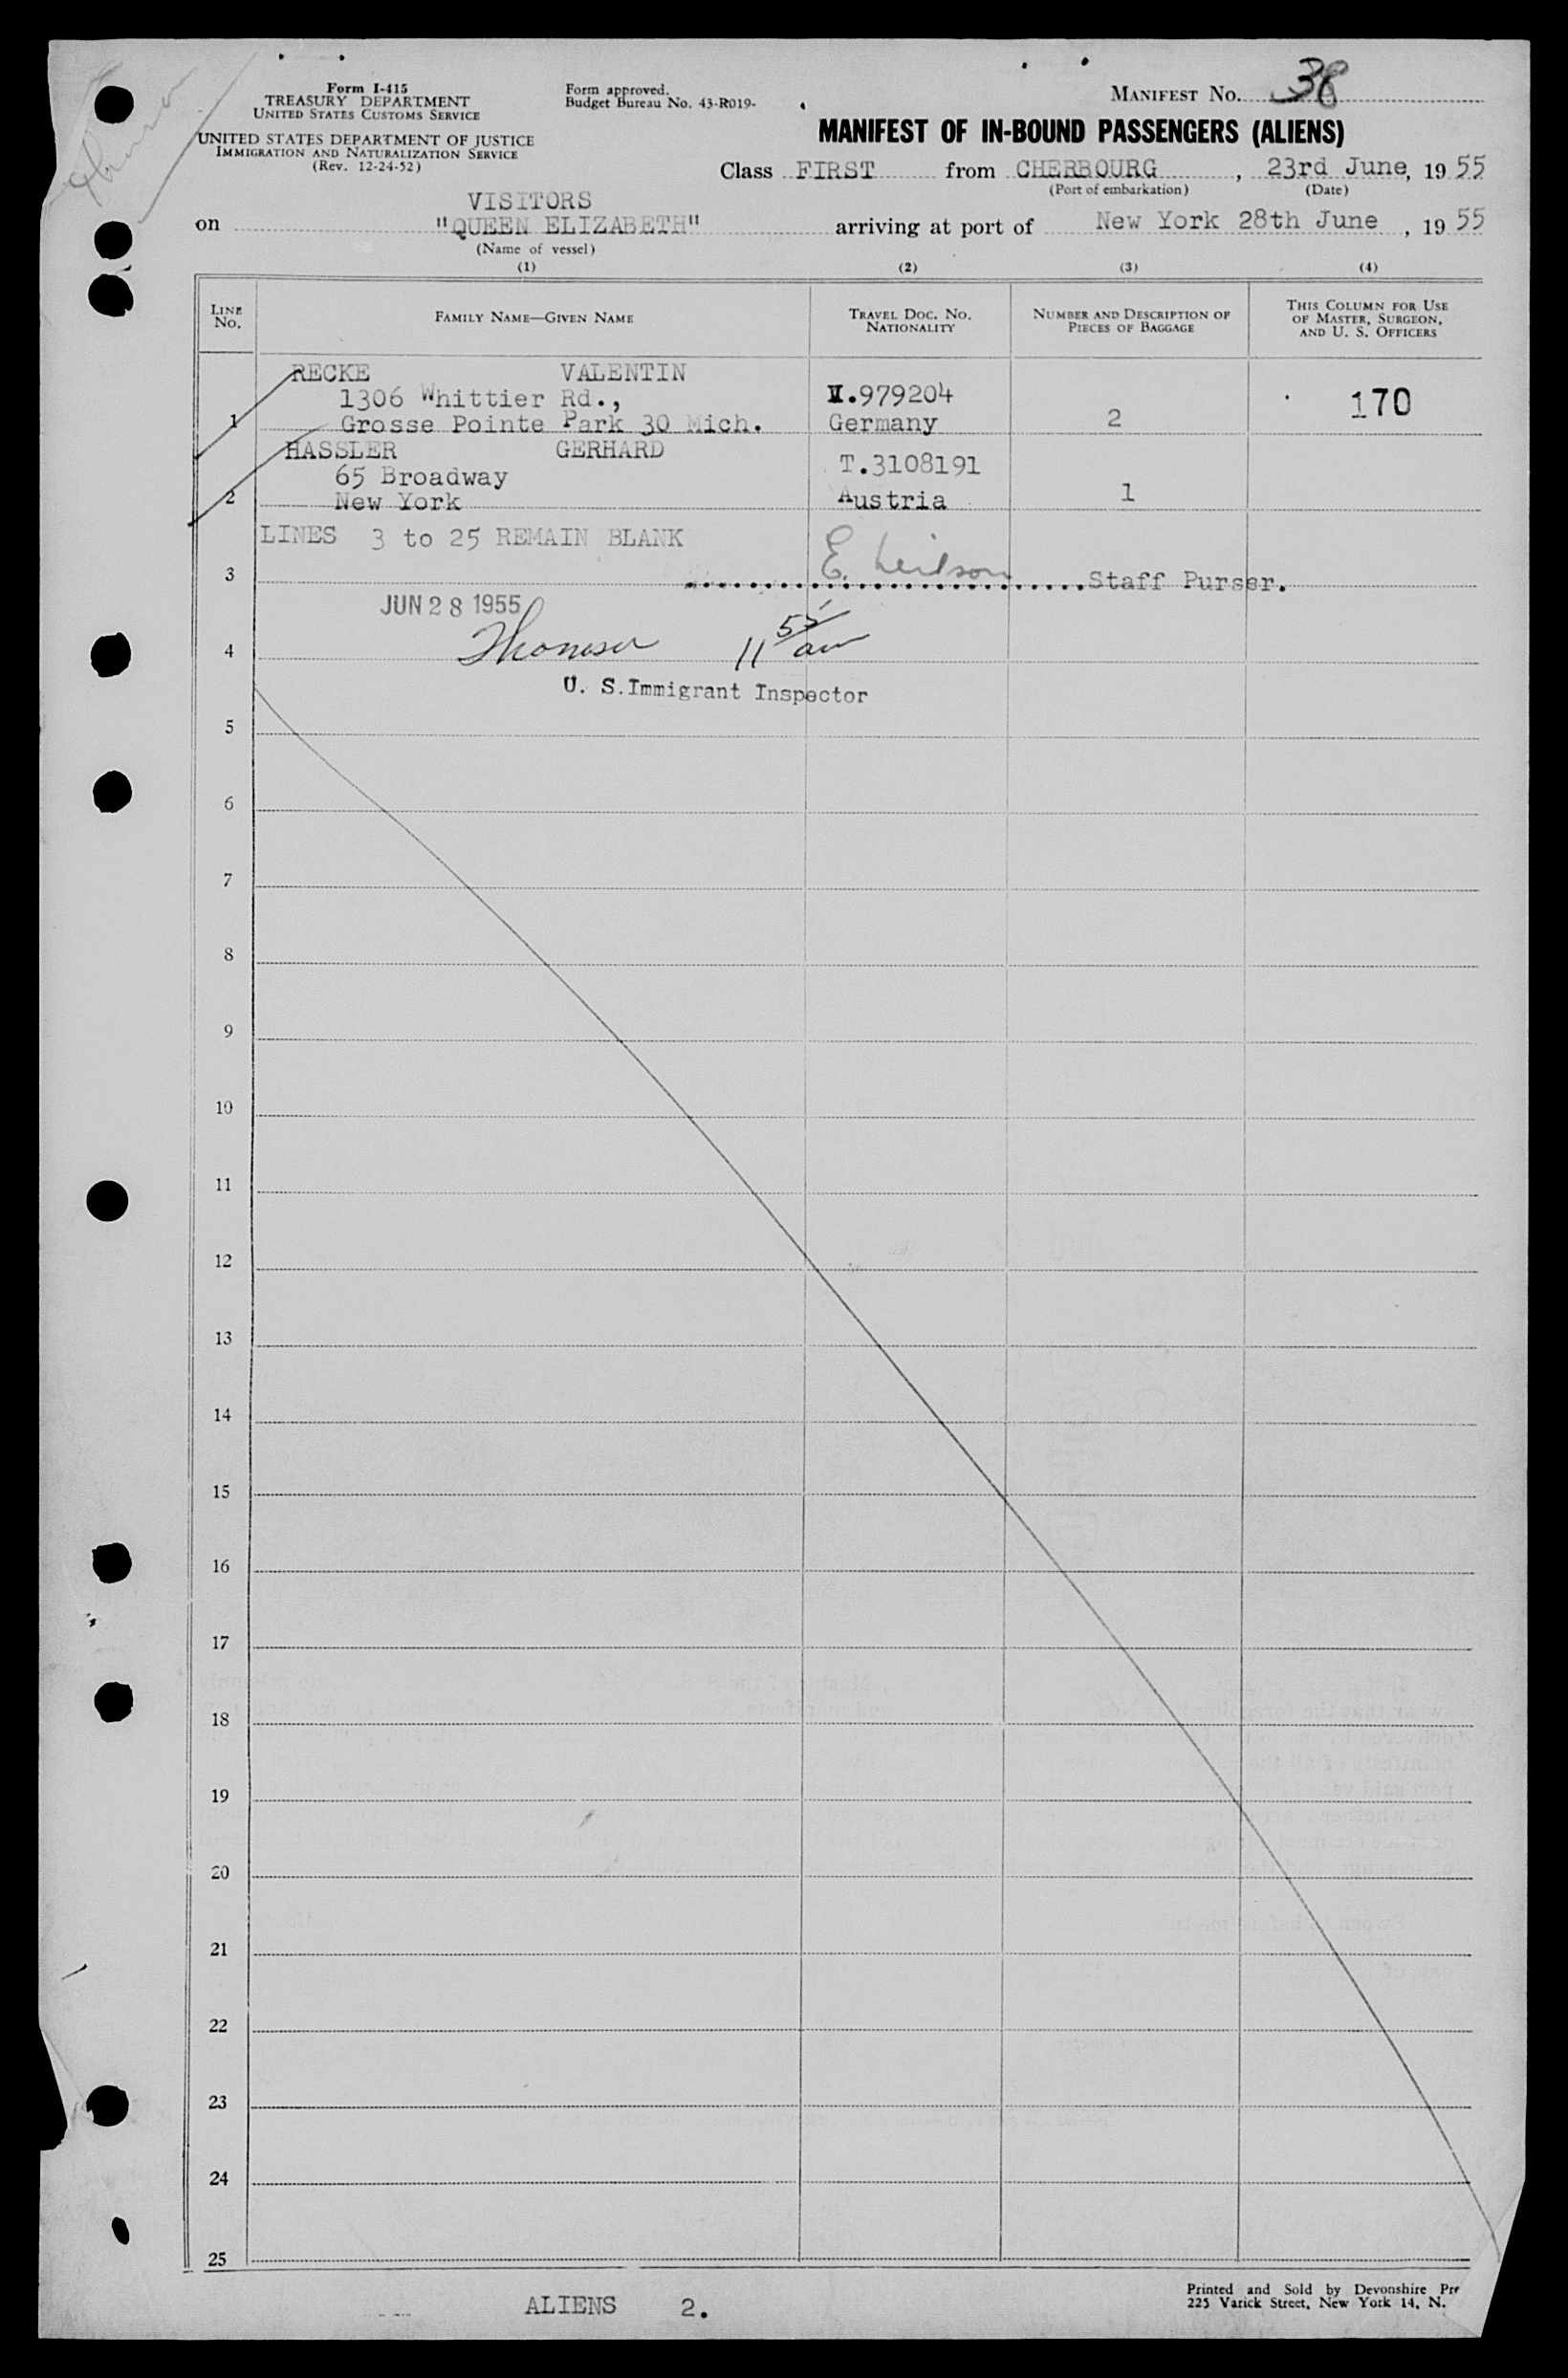 Form I-415
TREASURY DEPARTMENT
UNITED STATES CUSTOMS SERVICE
UNITED STATES DEPARTMENT OF JUSTICE
IMMIGRATION AND NATURALIZATION SERVICE
(Rev. 12-24-52)
Form approved.
Budget Bureau No. 43-R019-
MANIFEST NO. 38
MANIFEST OF IN-BOUND PASSENGERS (ALIENS)
Class FIRST from CHERBOURG, 23rd June, 19 55
(Port of embarkation) (Date)
VISITORS
on "QUEEN ELIZABETH" arriving at port of New York 28th June, 19 55
(Name of vessel)
(1) (2) (3) (4)
LINE NO. FAMILY NAME—GIVEN NAME TRAVEL DOC. NO. NATIONALITY NUMBER AND DESCRIPTION OF PIECES OF BAGGAGE THIS COLUMN FOR USE OF MASTER, SURGEON, AND U. S. OFFICERS
RECKE VALENTIN
1306 Whittier Rd., V.979204 170
1 Grosse Pointe Park 30 Mich. Germany 2
HASSLER GERHARD
65 Broadway T.3108191
2 New York Austria 1
LINES 3 to 25 REMAIN BLANK
3 E. Neilson Staff Purser.
JUN 28 1955
4 11 55 am
U. S. Immigrant Inspector
5
6
7
8
9
10
11
12
13
14
15
16
17
18
19
20
21
22
23
24
25
ALIENS 2.
Printed and Sold by Devonshire Pr
225 Varick Street, New York 14, N.